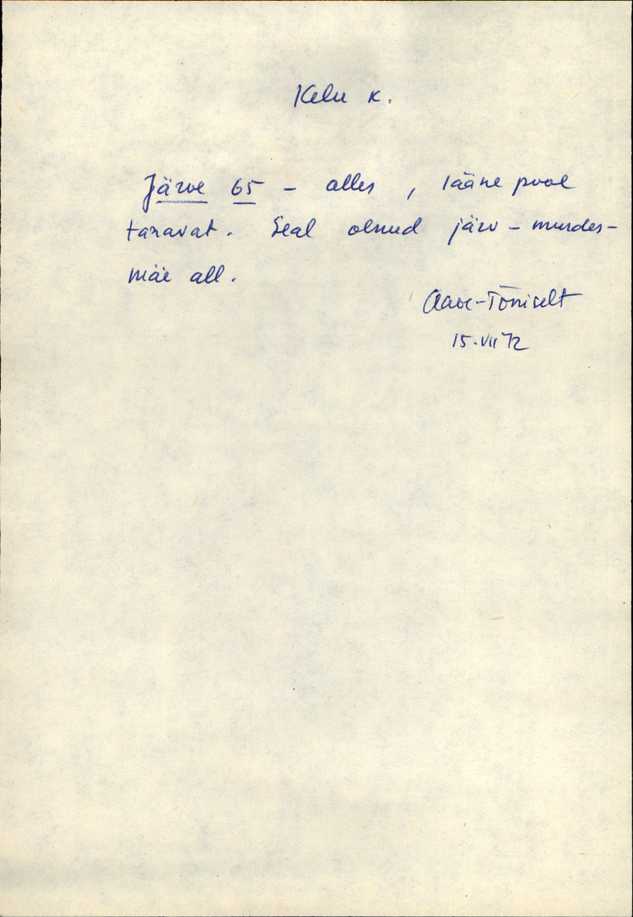 Kelu k.
Järve 65 - alles, lääne pool
taravat. Seal olnud järv - murdes-
mäe all.
Aavc-Tõniselt
15.VII 72